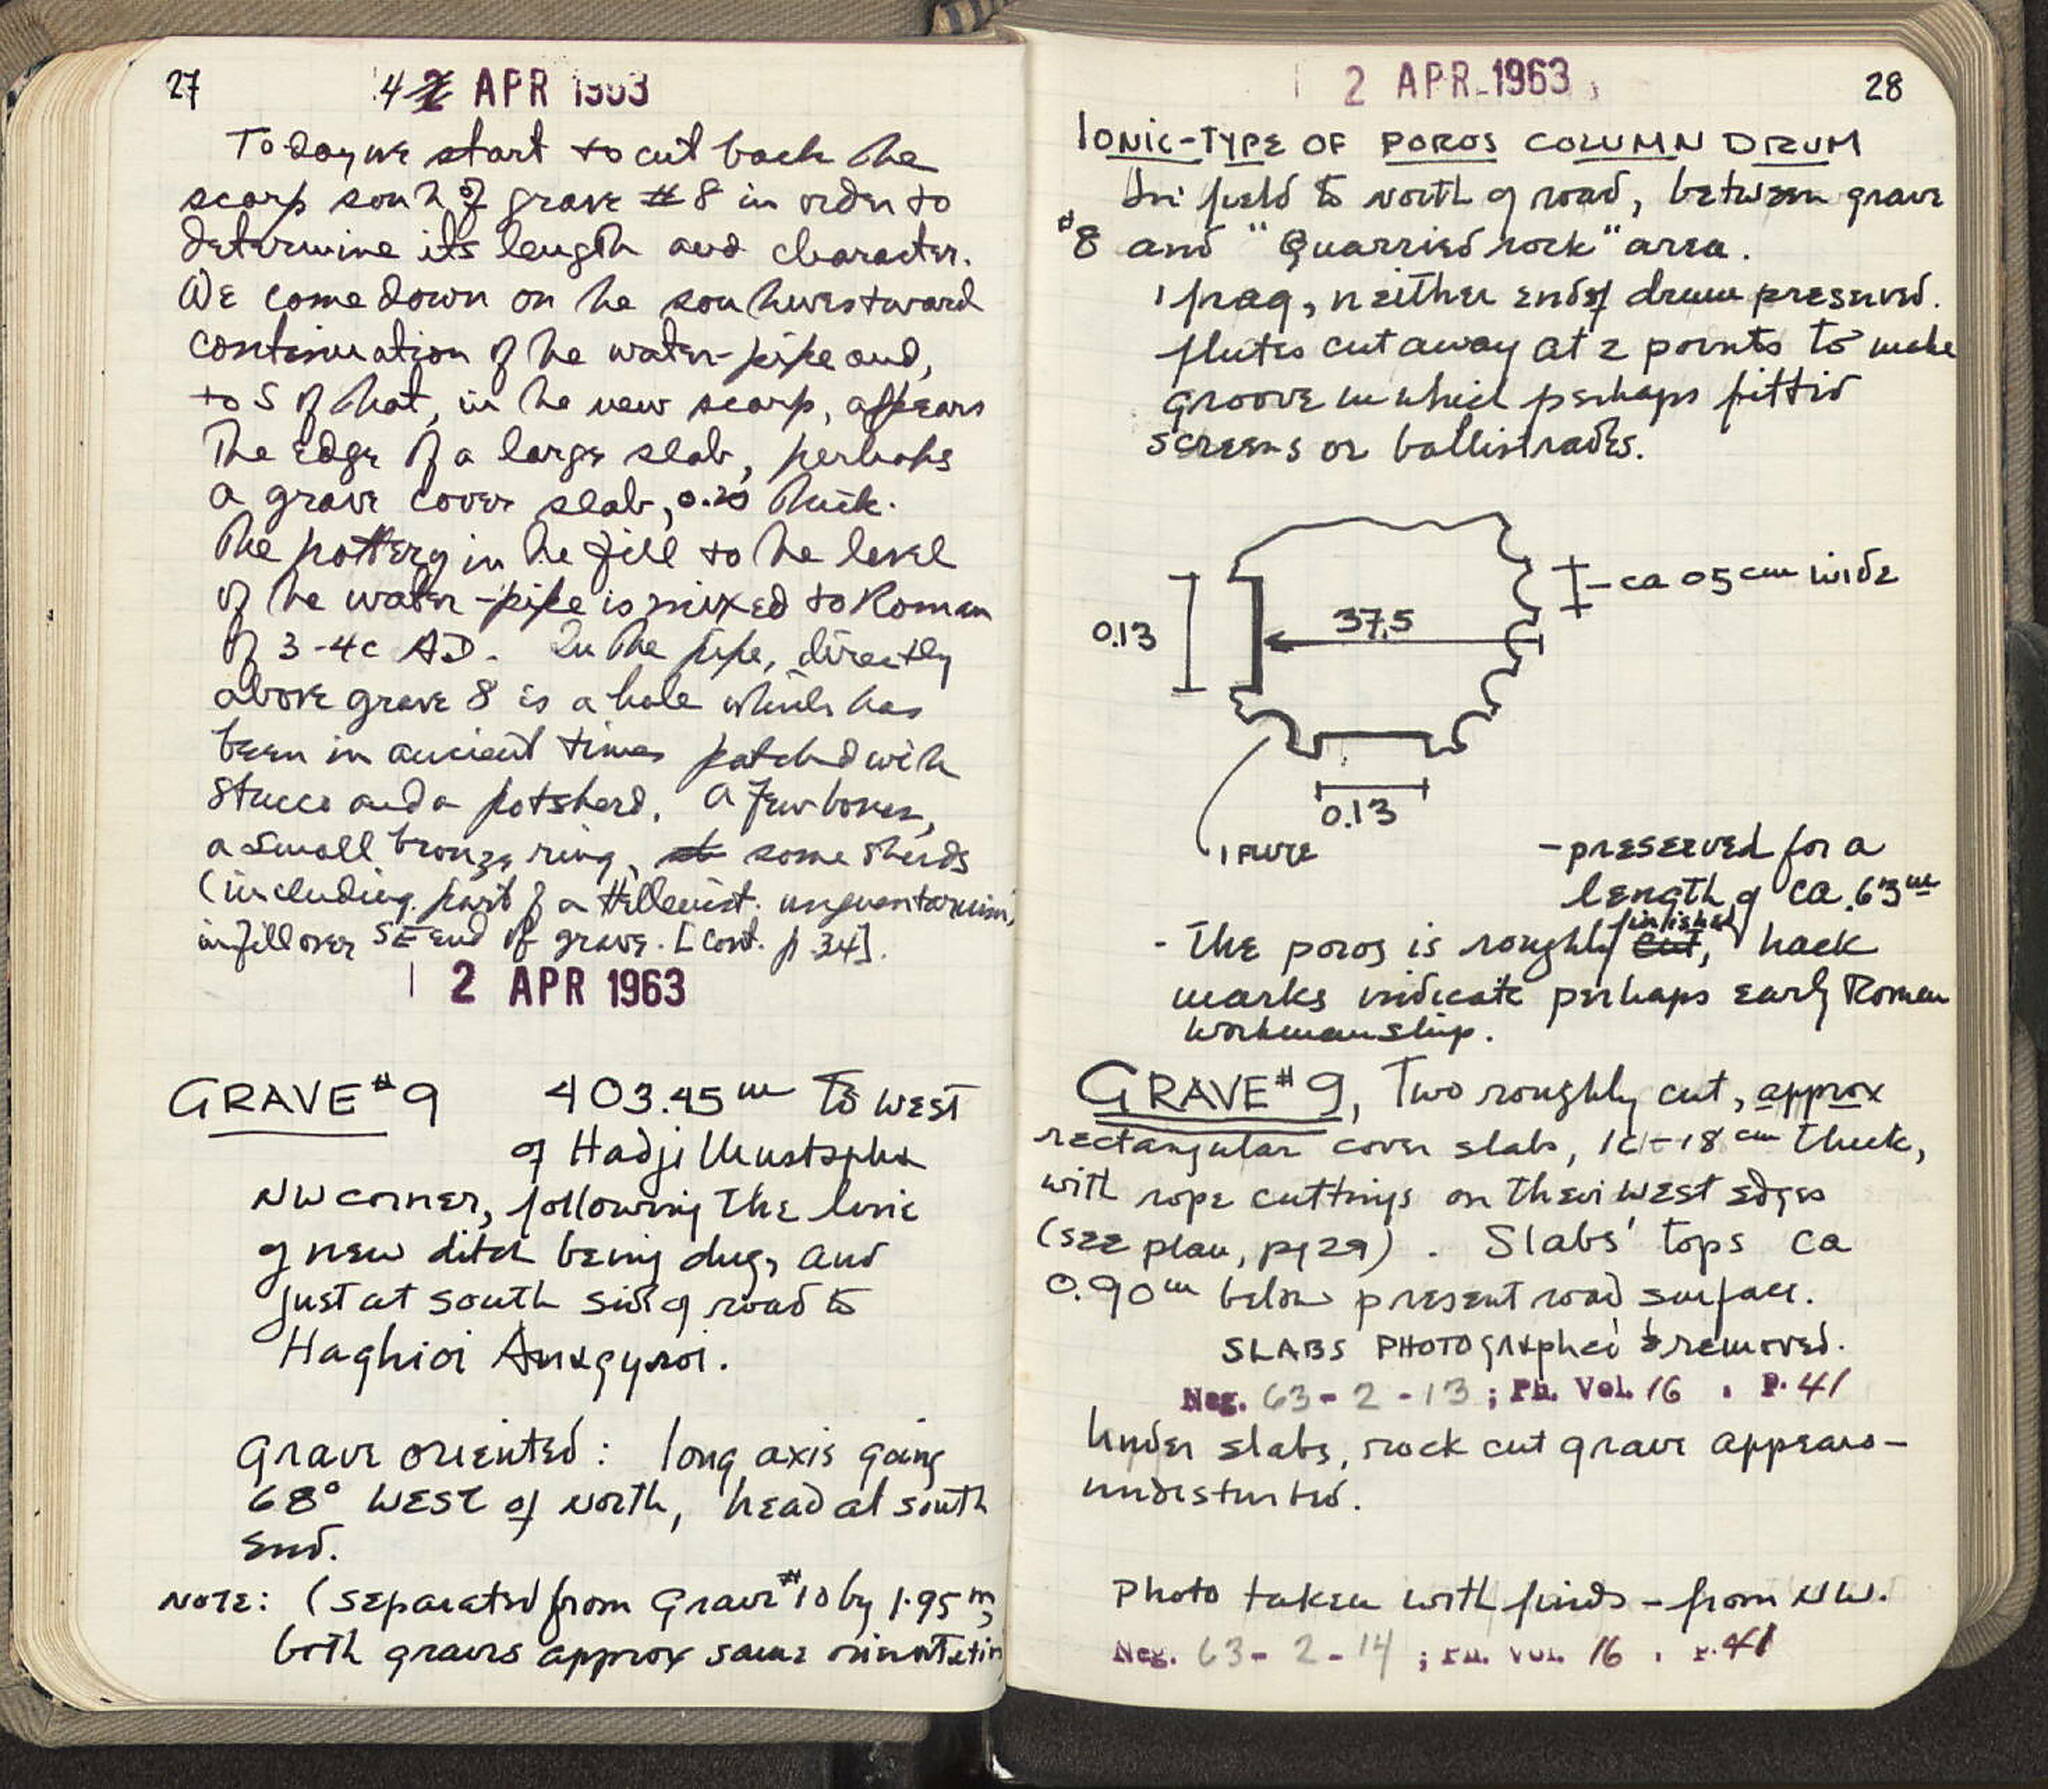 27
4 2 APR 1963
Today we start to cut back the
scarp south of grave #8 in order to
determine its length and character.
We come down on the southwestward
continuation of the water-pipe and,
to S of that, in the new scarp, appears
the edge of a large slab, perhaps
a grave cover slab, 0.20 thick.
The pottery in the fill to the level
of the water-pipe is mixed to Roman
of 3-4c AD. In the pipe, directly
above grave 8 is a hole which has
been in ancient times patched with
stucco and a potsherd. A few bones,
a small bronze ring, some sherds
(including part of a Hellenist. unguentarium,
in fill over SE end of grave. [cont. p 34].
2 APR 1963
GRAVE #9 403.45 m to west
of Hadji Mustapha
NW corner, following the line
of new ditch being dug, and
just at south side of road to
Haghioi Anargyroi.
Grave oriented: long axis going
68° west of north, head at south
end.
NOTE: (separated from Grave #10 by 1.95 m,
both graves approx same orientation
2 APR 1963
28
IONIC-TYPE OF POROS COLUMN DRUM
In field to north of road, between grave
#8 and "Quarried rock" area.
1 frag, neither end of drum preserved.
flutes cut away at 2 points to make
groove in which perhaps fitted
screens or ballistrades.
ca 05 cm wide
0.13
37.5
0.13
1 FLUTE
- preserved for a
length of ca .63 m
- The poros is roughly cut, finished, hack
marks indicate perhaps early Roman
workmanship.
GRAVE #9, Two roughly cut, approx
rectangular cover slabs, 16-18 cm thick,
with rope cuttings on their west edges
(see plan, pg 29). Slabs' tops ca
0.90 m below present road surface.
SLABS PHOTOgraphed & removed.
Neg. 63-2-13; Ph. Vol. 16 . P. 41
Under slabs, rock cut grave appears -
undisturbed.
Photo taken with finds - from NW.
Neg. 63-2-14; Ph. Vol. 16 . P. 41